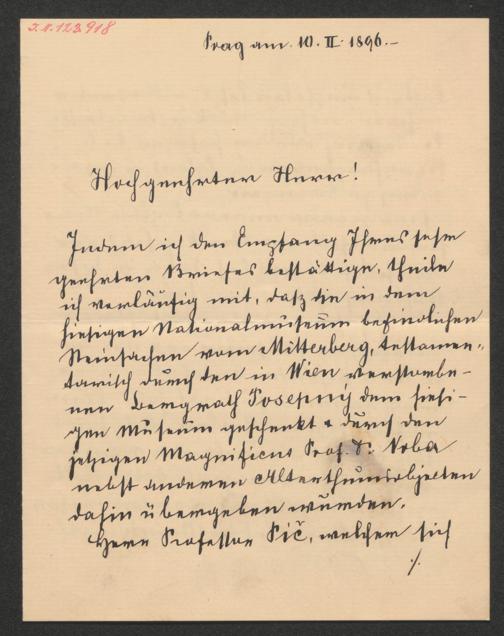 I.N.123.918
Prag am 10. II. 1896.–
Hochgeehrter Herr!
Indem ich den Empfang Ihres sehr
geehrten Briefes bestättige, theile
ich verläufig mit, dasz die in dem
hiesigen Nationalmuseum befindlichen
Steinsachen vom Mitterberg, testamen-
tarisch durch den in Wien verstorbe-
nen Bergrath Posepný dem hiesi-
gen Museum geschenkt & durch den
jetzigen Magnificus Prof. Dr. Vrba
nebst anderen Alterthumsobjecten
dahin übergeben wurden.
Herr Professor Píč, welcher sich
./.